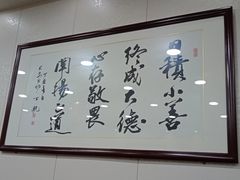 日積小善
終成大德
心存敬畏
闻揚之道